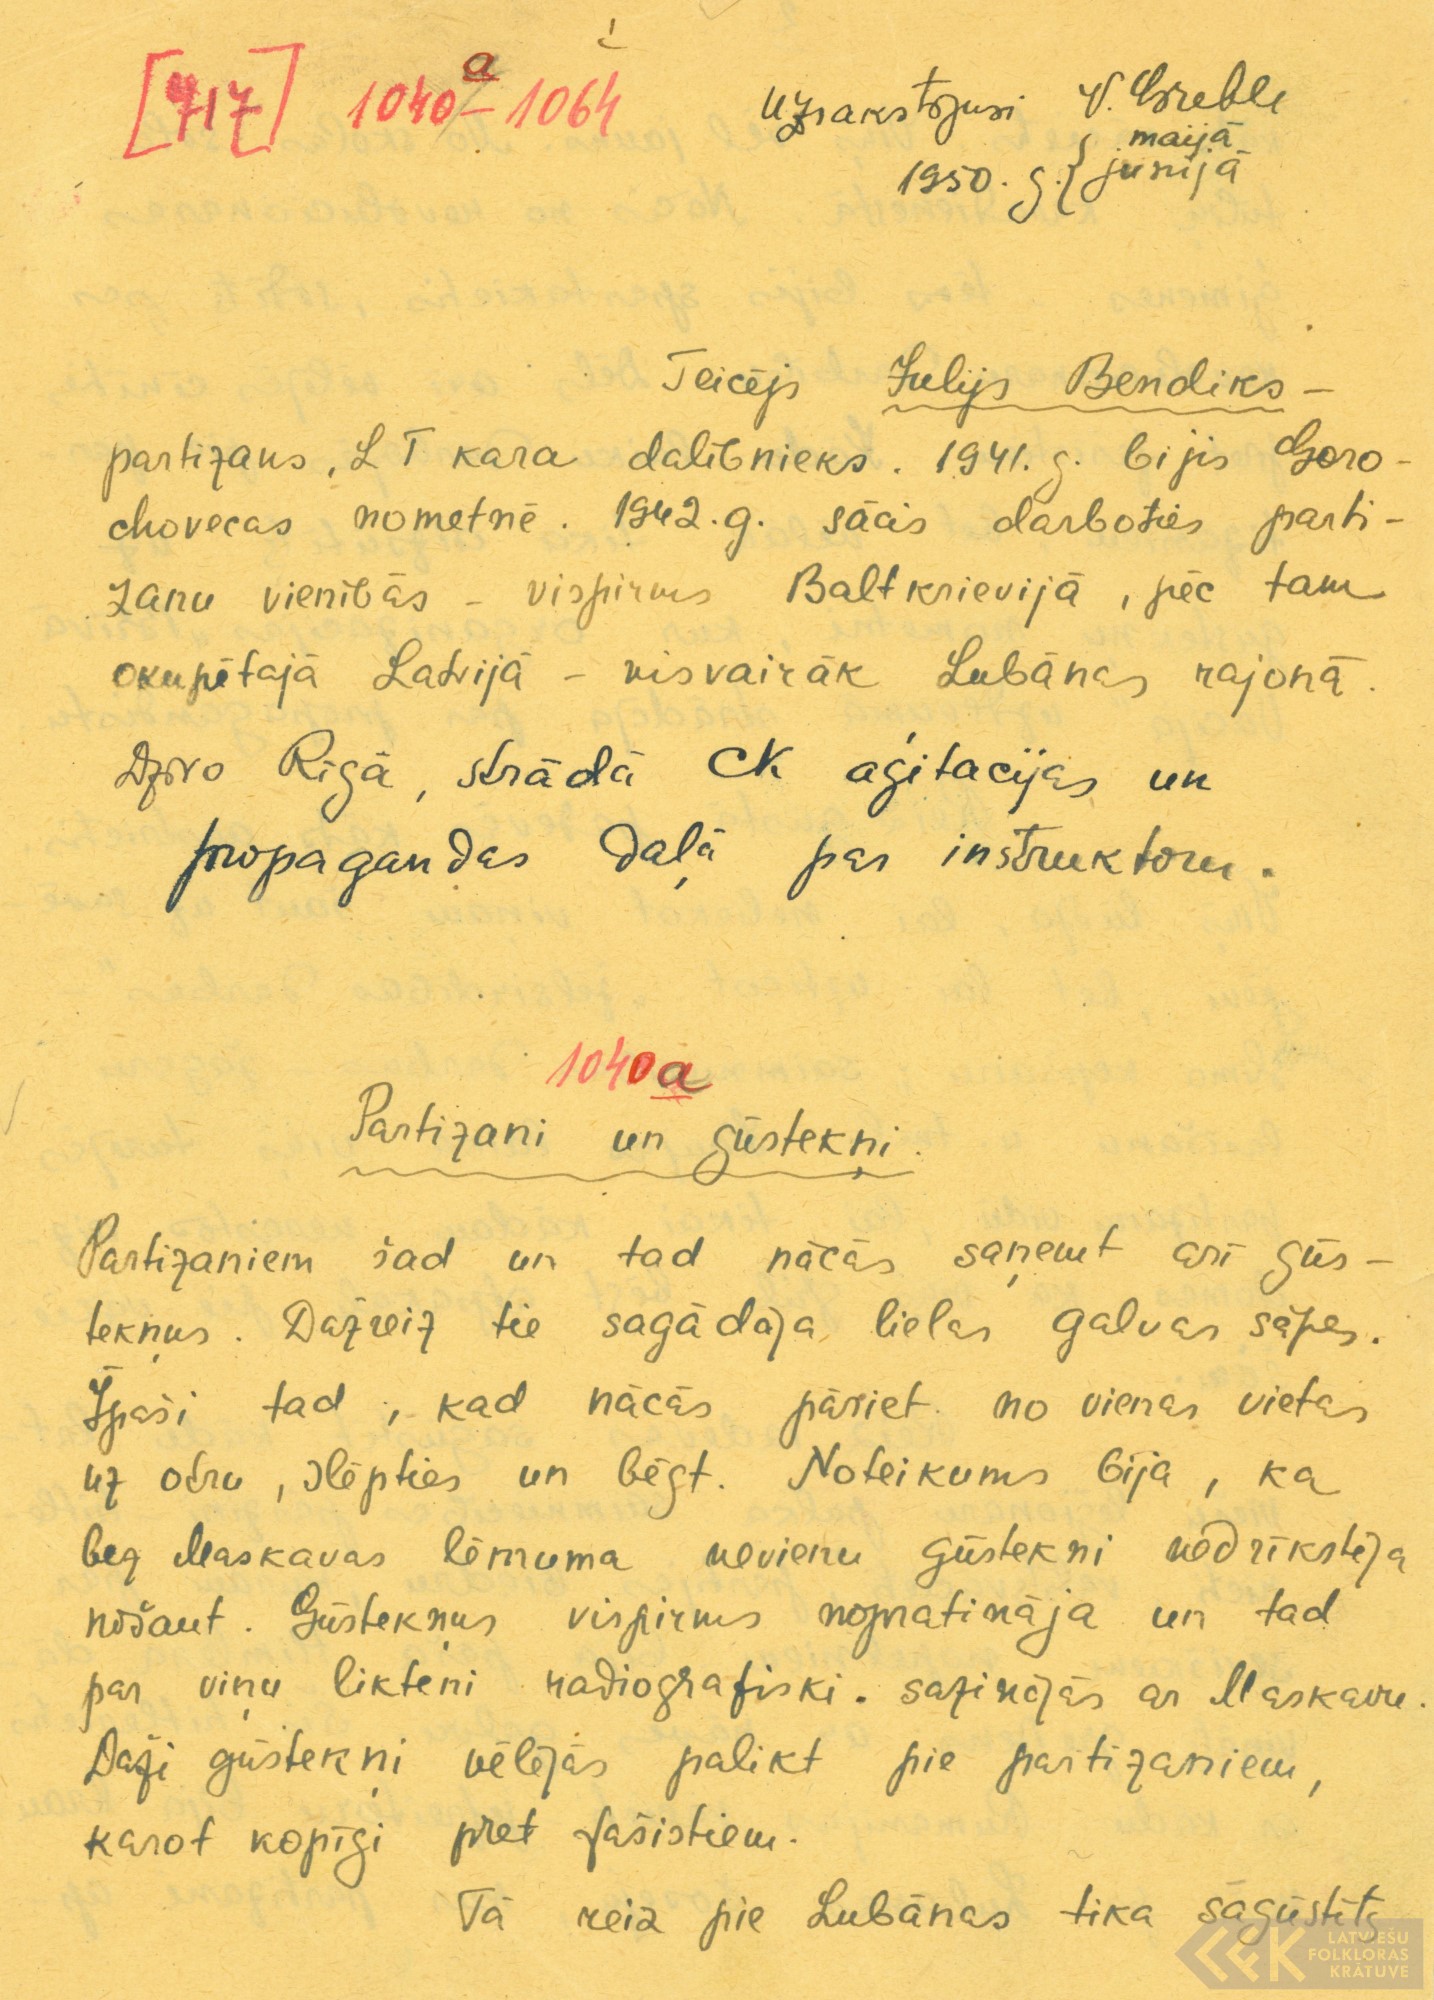 [717] 1040a – 1064
Uzrakstījusi V. Greble
1950. g. { maijā
jūnijā
Teicējs Julijs Bendiks –
partizans, LT kara dalībnieks. 1941. g. bijis Goro-
chovecas nometnē. 1942. g. sācis darboties parti-
zanu vienībās – vispirms Baltkrievijā, pēc tam
okupētajā Latvijā – visvairāk Lubānas rajonā.
Dzīvo Rīgā, strādā CK aģitacijas un
propagandas daļā par instruktoru.
1040a
Partizani un gūstekņi.
Partizaniem šad un tad nācās saņemt arī gūs-
tekņus. Dažreiz tie sagādāja lielas galvas sāpes.
Īpaši tad, kad nācās pāriet no vienas vietas
uz otru, slēpties un bēgt. Noteikums bija, ka
bez Maskavas lēmuma nevienu gūstekni nedrīkstēja
nošaut. Gūstekņus vispirms nopratināja un tad
par viņu likteni radiografiski. sazinājās ar Maskavu.
Daži gūstekņi vēlējās palikt pie partizaniem,
karot kopīgi pret fašistiem.
Tā reiz pie Lubānas tika sagūstīts
LATVIEŠU
FOLKLORAS
KRĀTUVE